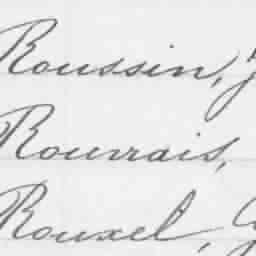 Roussin, J
Rourrais,
Rouxel, J